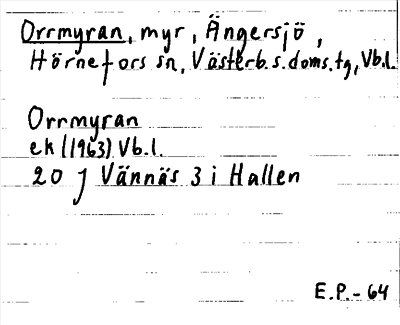 Orrmyran, myr, Ängersjö,
Hörnefors sn, Västerb.s.doms.tg, Vb.l.
Orrmyran
ek (1963) Vb.l.
20 J Vännäs 3 i Hallen
E.P.-64